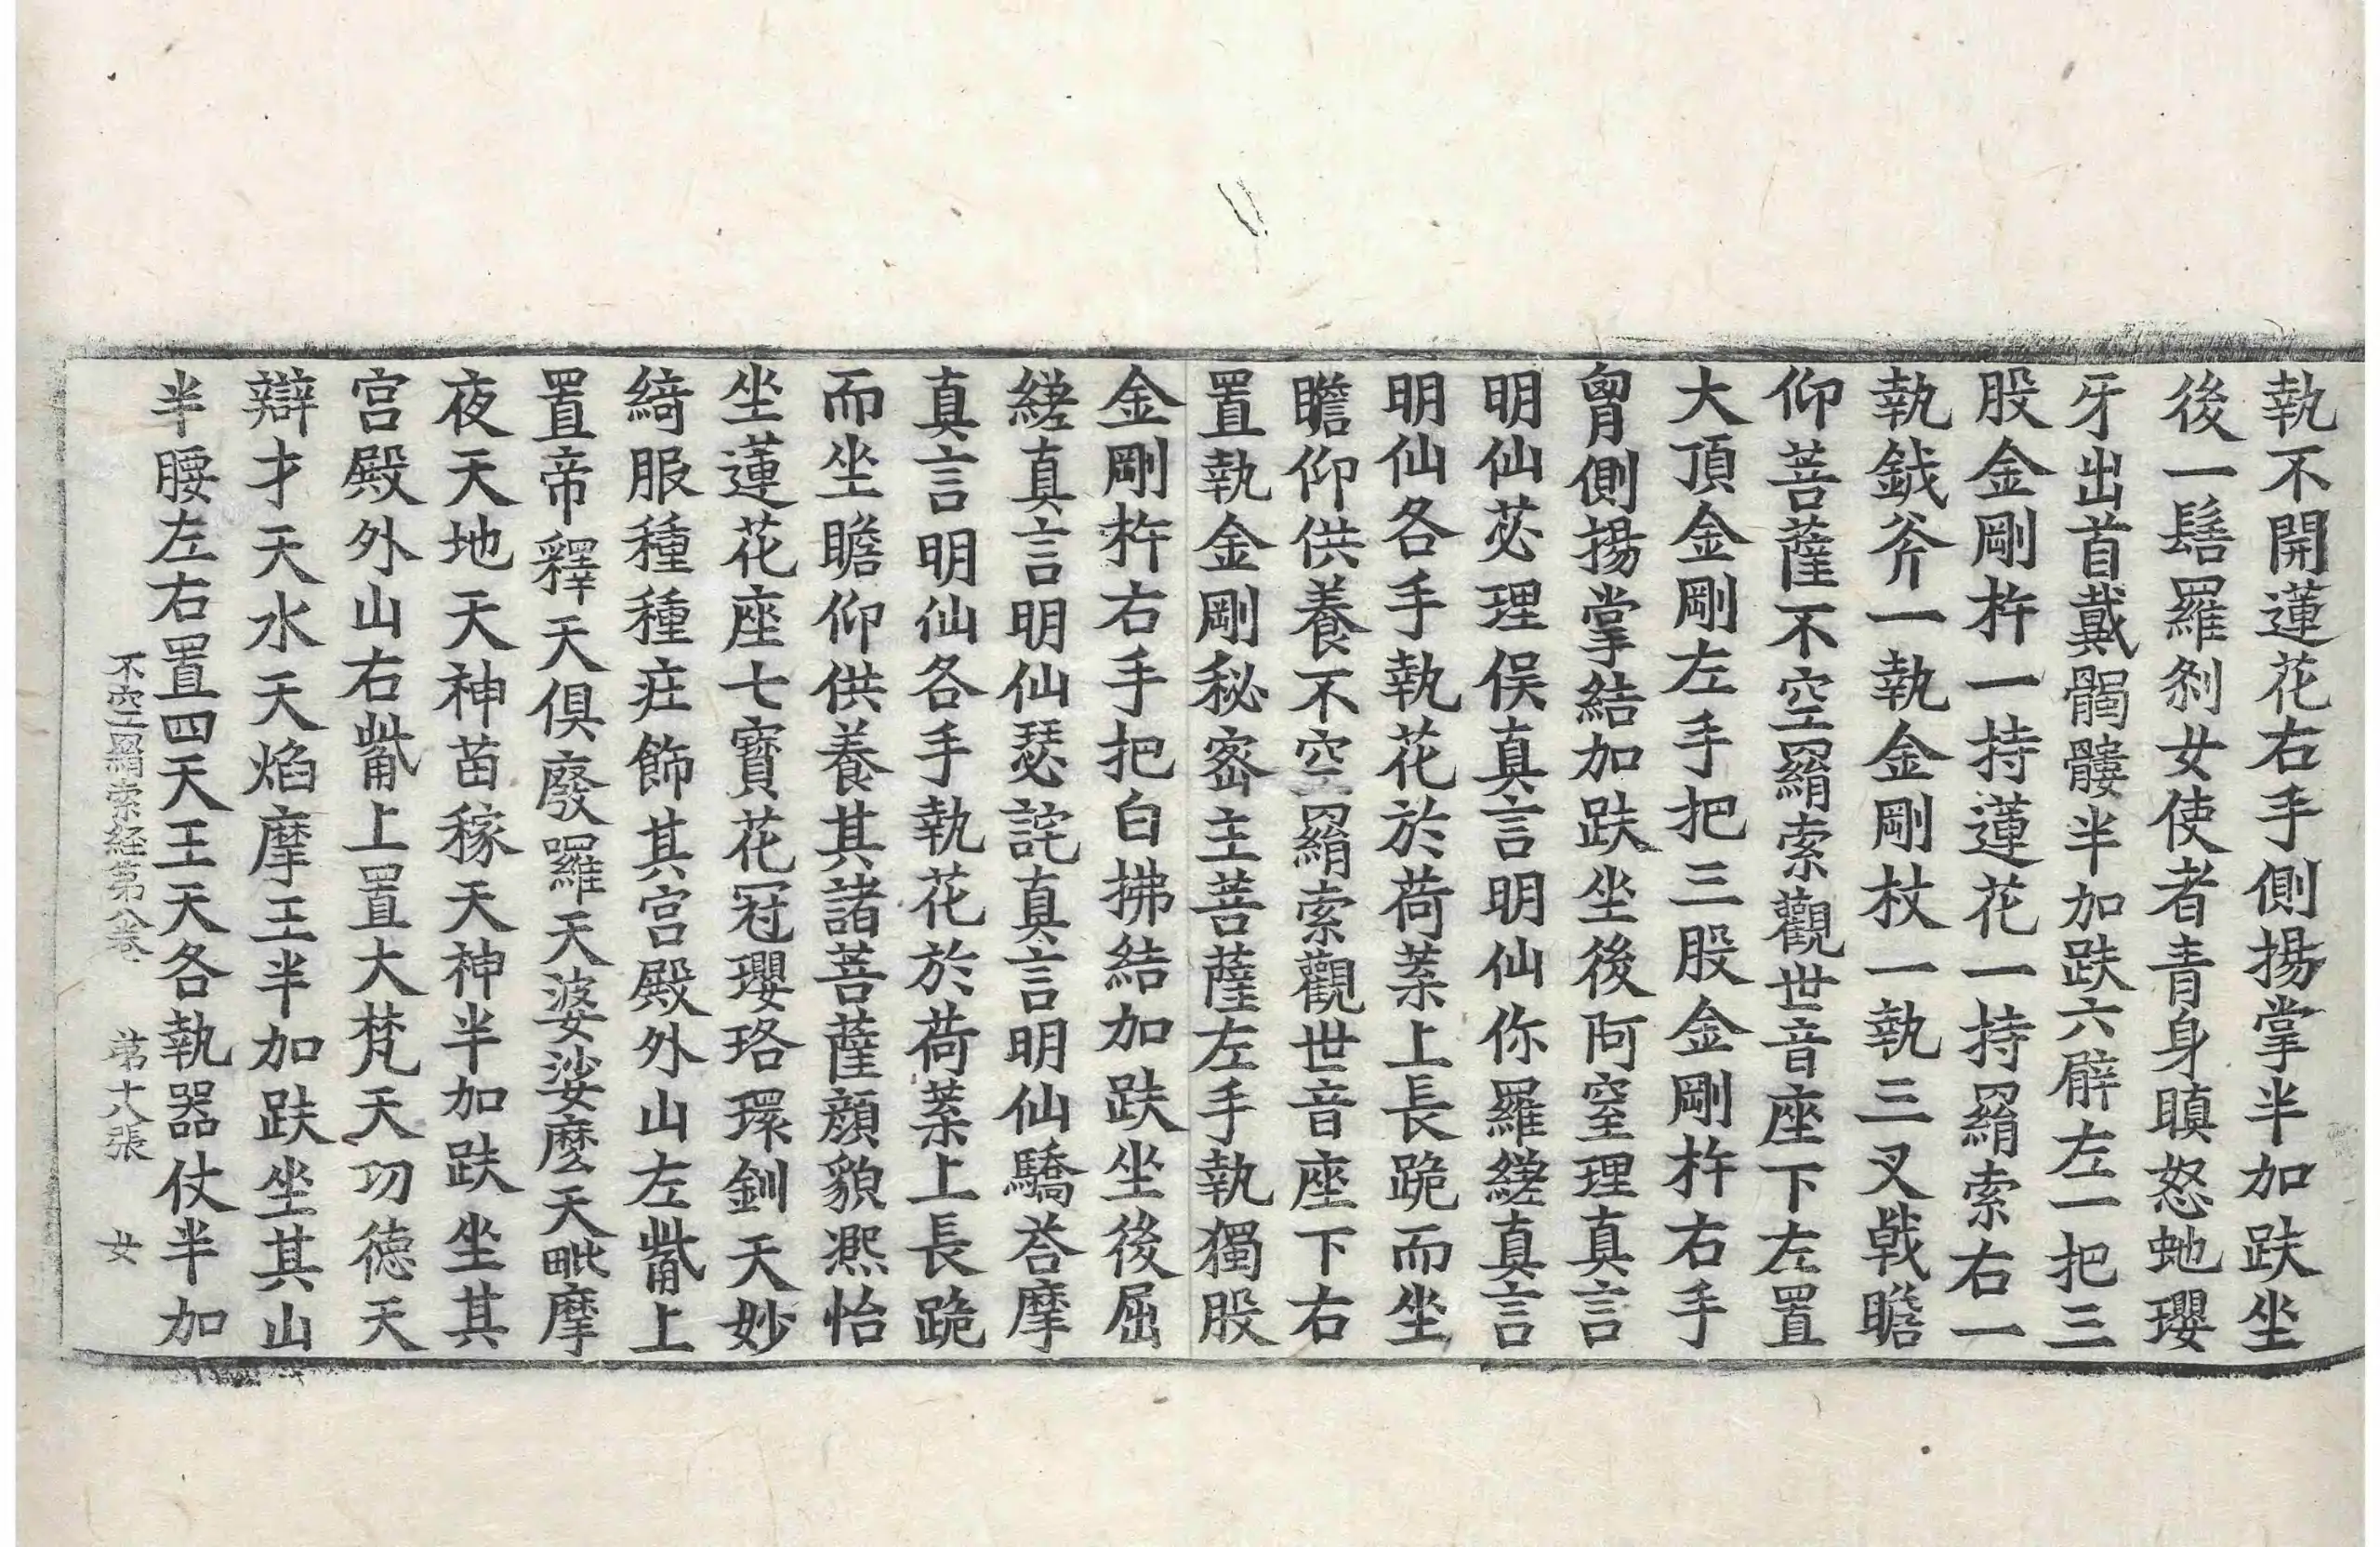 執不開蓮花右手側揚掌半加趺坐
後一髻羅剎女使者青身瞋怒虵瓔
牙出首戴髑髏半加趺六臂左一把三
股金剛杵一持蓮花一持羂索右一
執鉞斧一執金剛杖一執三叉戟瞻
仰菩薩不空羂索觀世音座下左置
大頂金剛左手把三股金剛杵右手
胷側揚掌結加趺坐後阿窒理真言
明仙苾理俁真言明仙你羅縒真言
明仙各手執花於荷葉上長跪而坐
瞻仰供養不空羂索觀世音座下右
置執金剛秘密主菩薩左手執獨股
金剛杵右手把白拂結加趺坐後屈
縒真言明仙瑟詫真言明仙驕荅摩
真言明仙各手執花於荷葉上長跪
而坐瞻仰供養其諸菩薩顏貌凞怡
坐蓮花座七寶花冠瓔珞環釧天妙
綺服種種疘飾其宮殿外山左觜上
置帝釋天俱廢羅天婆娑麼天毗摩
夜天地天神苗稼天神半加趺坐其
宮殿外山右觜上置大梵天功德天
辯才天水天焰摩王半加趺坐其山
半腰左右置四天王天各執器仗半加
不空羂索経第八卷 第十八張 女